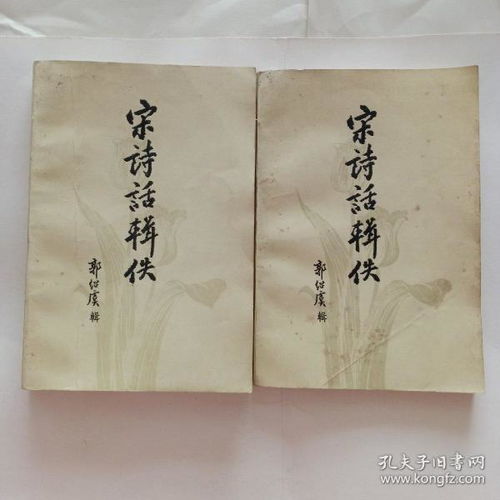 宋詩話輯佚
郭绍虞 輯
宋詩話輯佚
郭绍虞 輯
孔夫子旧书网
www.kongfz.com